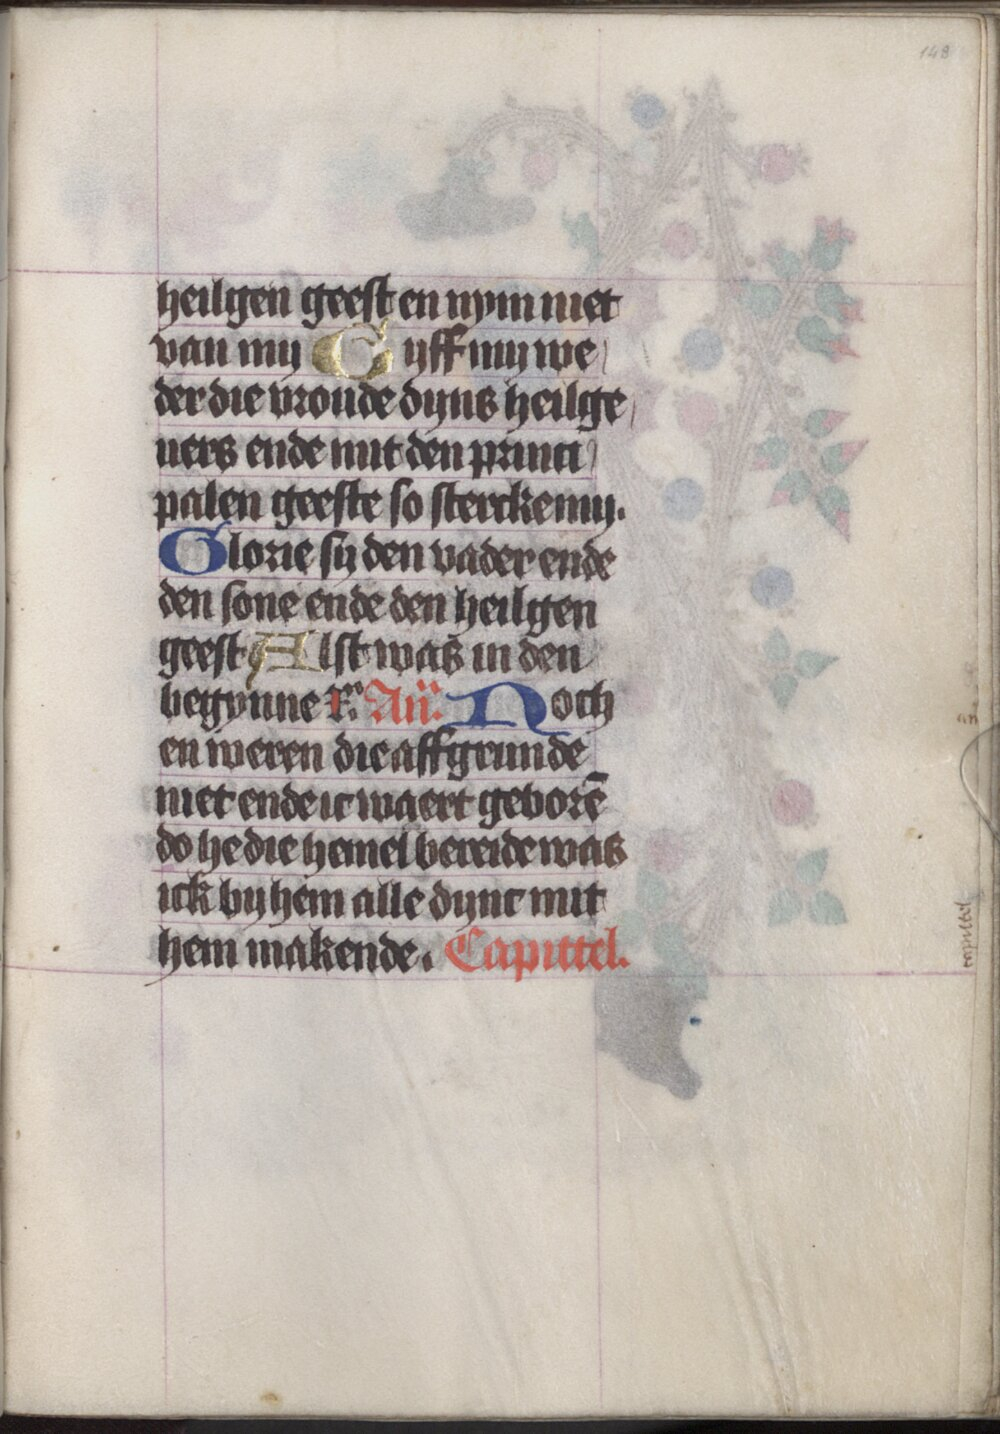 148
heilgen geest en nym niet
van my Gyff my we
der die vroude dyns heilge
ners ende mit den princi
palen geeste so stercke my.
Glorie sy den vader ende
den sone ende den heilgen
geest Alst was in den
begynne rc. An. Noch
en weren die affgrunde
niet ende ic waert geborē
do he die hemel bereide was
ick by hem alle dync mit
hem makende. Capittel.
capittel